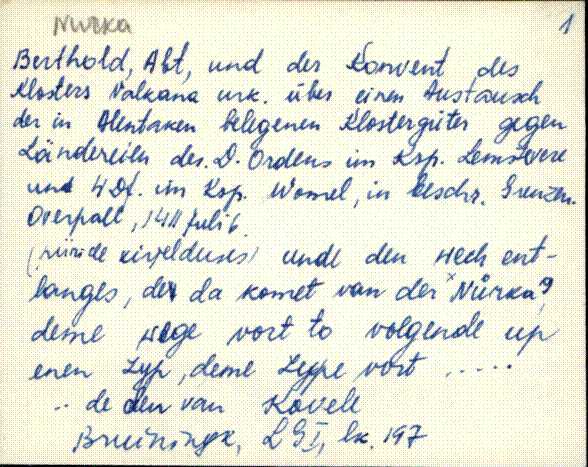 Nurka
1
Berthold, Abt, und der Konvent des
Klosters Valkana urk. über einen Austausch
der in Alentaken belegenen Klostergüter gegen
Ländereien des D. Ordens im Ksp. Lemsevere
und 4 Df. im Ksp. Womel, in beschr. Grenzen.
Overpall, 1411 Juli 6.
(piiride kirjelduses) unde den wech ent-
langes, der da komet van der "Nůrka",
deme wege vort to volgende up
enen Syp, deme Sype vort .....
.. de den van Kovele
Bruiningk, LG I, lk. 197